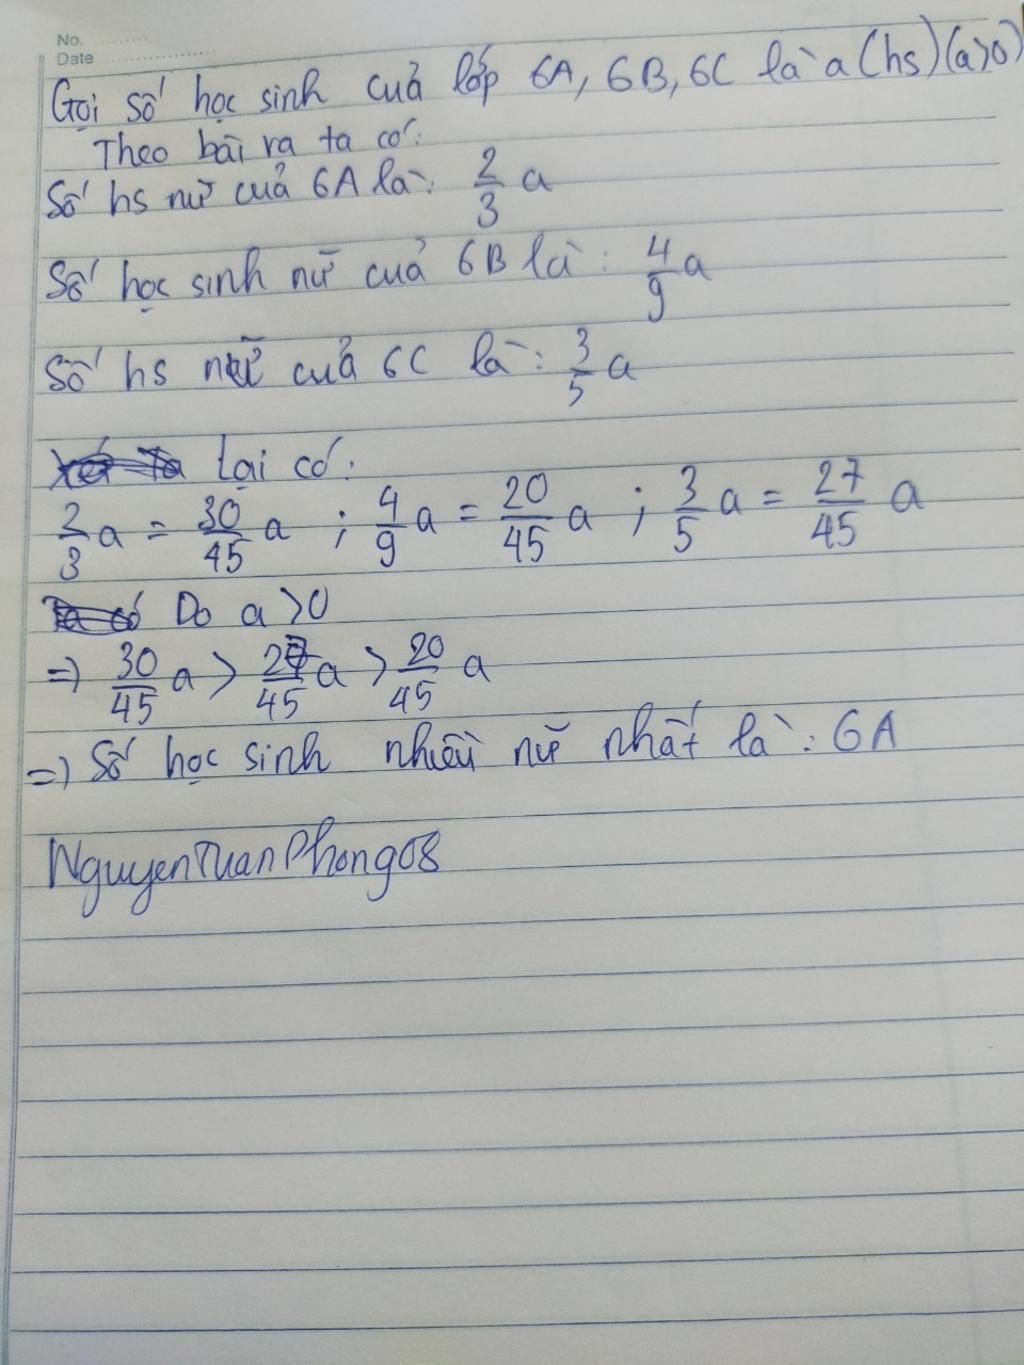 No. ..........
Date ....................
Gọi số học sinh cuả lớp 6A, 6B, 6C là a (hs) (a>0)
Theo bài ra ta có:
Số hs nữ cuả 6A là: 2/3 a
Số học sinh nữ cuả 6B là: 4/9 a
Số hs nữ cuả 6C là: 3/5 a
Lại có:
2/3 a = 30/45 a ; 4/9 a = 20/45 a ; 3/5 a = 27/45 a
Do a>0
=> 30/45 a > 27/45 a > 20/45 a
=> Số học sinh nhiều nữ nhất là: 6A
NguyenTuanPhong08